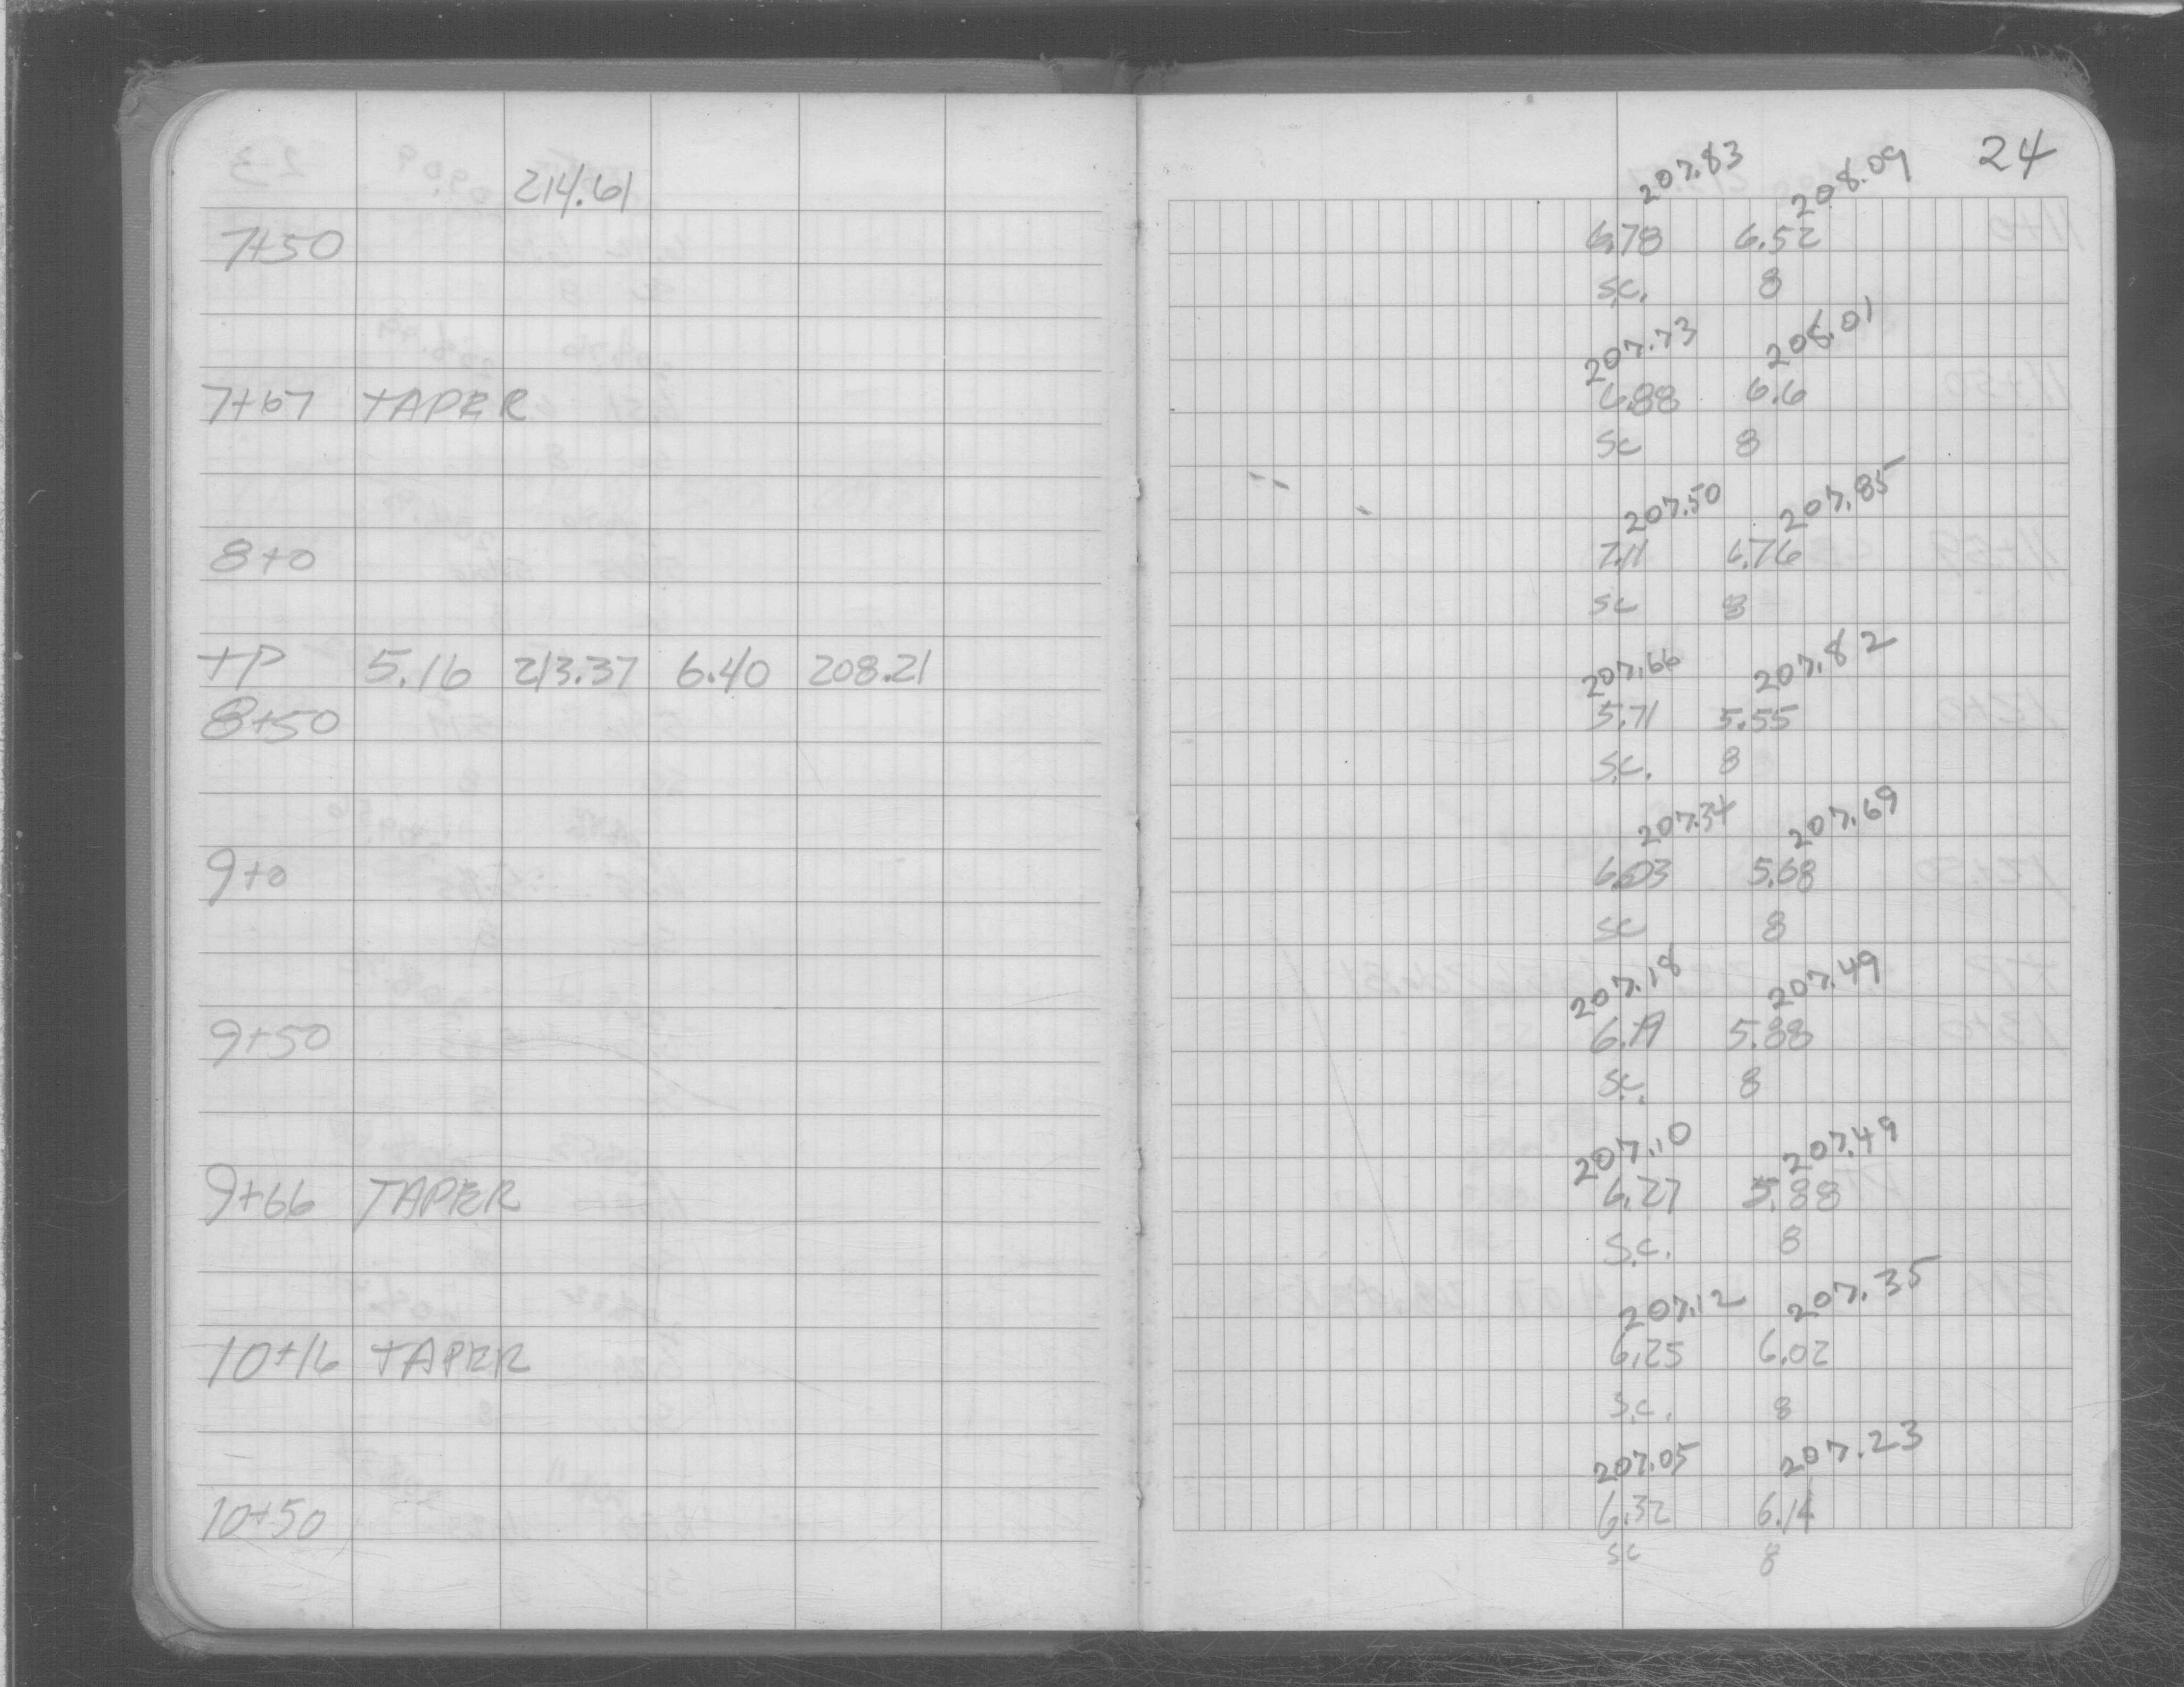 24
207.83 208.09
214.61
7+50 6.78 6.52
S.C. 8
207.73 208.01
7+67 TAPER 6.88 6.6
SC 8
207.50 207.85
8+0 7.11 6.76
SC 8
TP 5.16 213.37 6.40 208.21 207.66 207.82
8+50 5.71 5.55
S.C. 8
207.34 207.69
9+0 6.03 5.68
SC 8
207.18 207.49
9+50 6.19 5.88
S.C. 8
207.10 207.49
9+66 TAPER 6.27 5.88
S.C. 8
207.12 207.35
10+16 TAPER 6.25 6.02
S.C. 8
207.05 207.23
10+50 6.32 6.14
SC 8